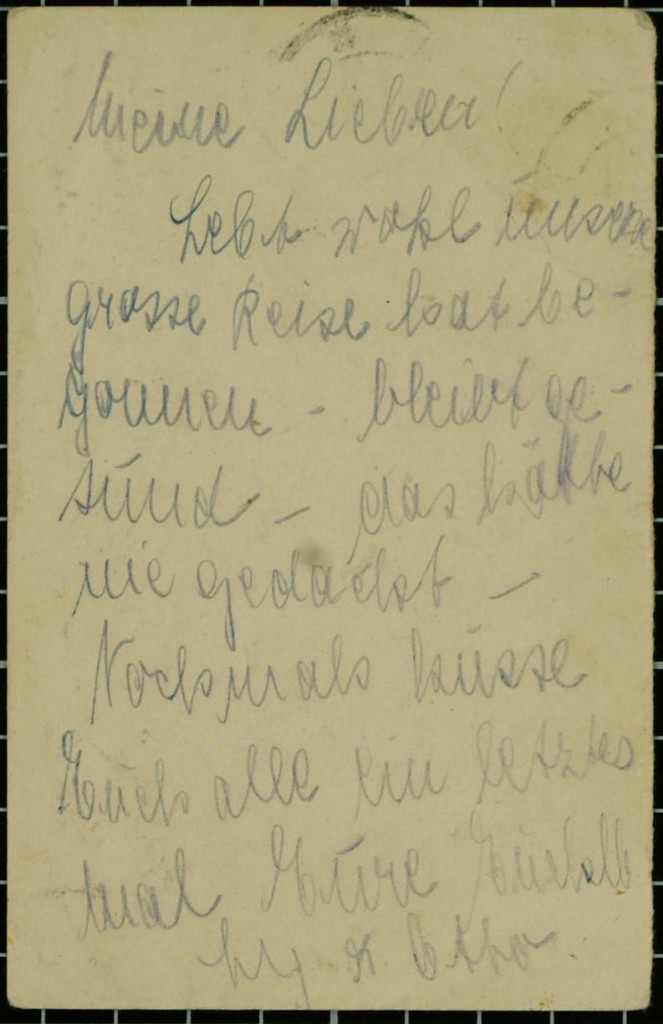 Meine Lieben!
Lebt wohl unsere
grosse Reise hat be-
gonnen - bleibt ge-
sund - das hätte
nie gedacht -
Nochmals küsse
Euch alle ein letztes
mal Eure Euch alle
& Otto.